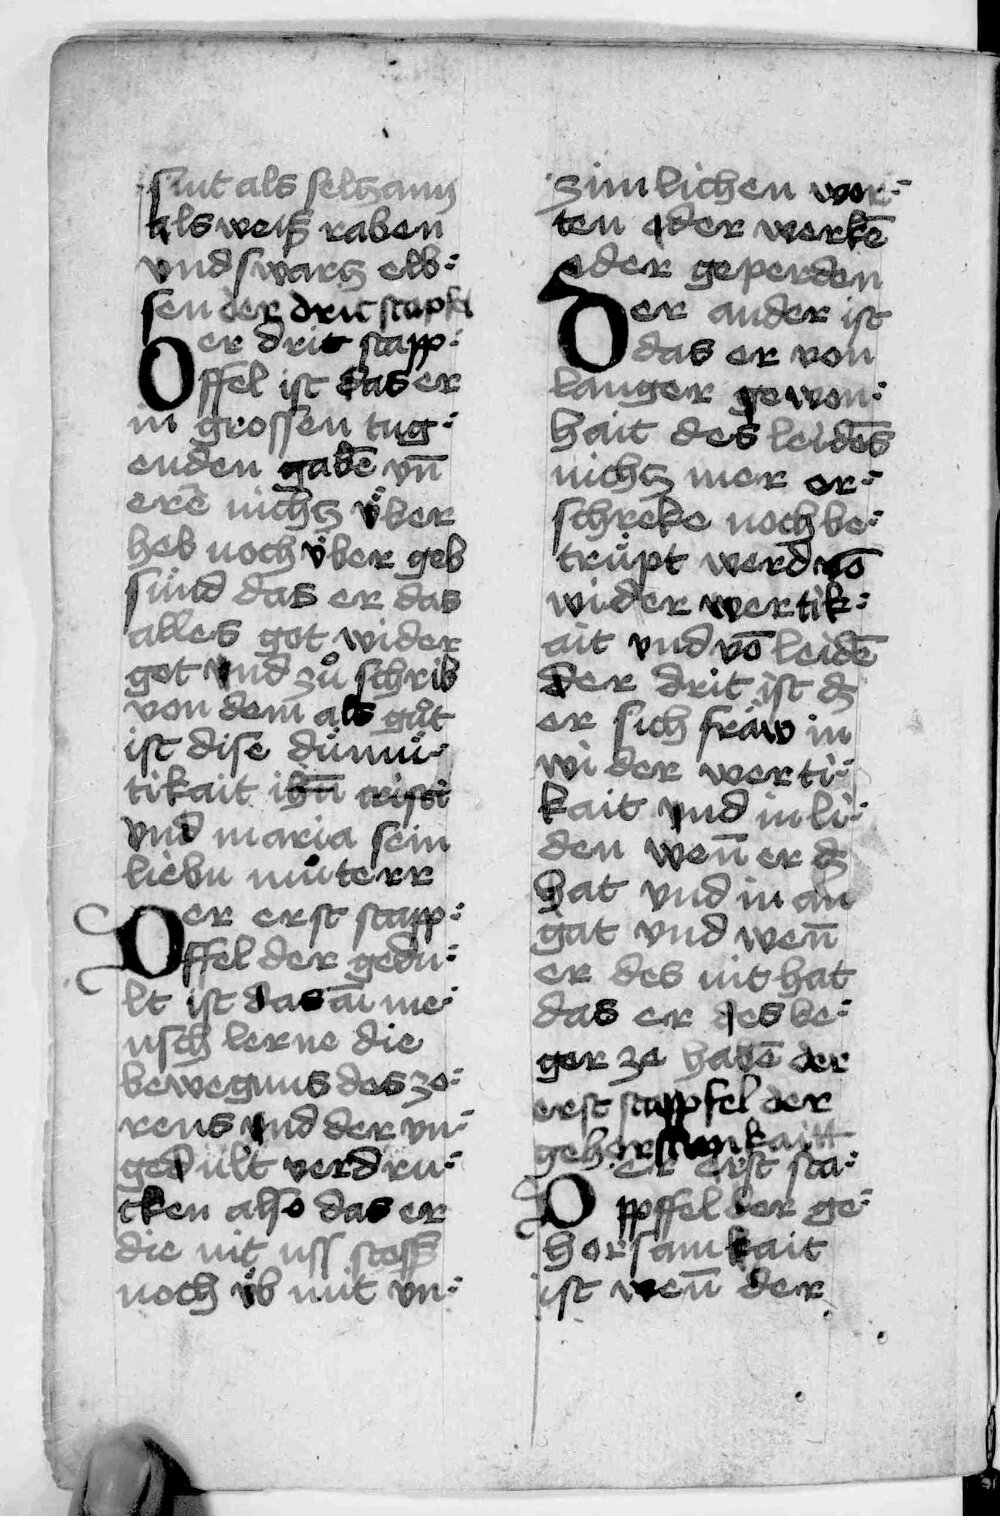 sint als selczann
als weiſ raben
vnd swarcz elb⸗
sen der drit stapfel
Der drit stapp⸗
ffel ist das er
in grossen tug⸗
enden gabē vn̄
erē nichcz v̈ber
heb noch v̈ber geb
sünd das er das
alles got wider
got vnd zů schrib
von dem als gůt
ist dise dümü⸗
tikait ihū cristi
vnd maria sein
liebn můterr
Der erst stapp⸗
ffel der gedu⸗
lt ist das ain me⸗
nsch lerne die
bewegnus des zo⸗
rens vnd der vn⸗
gedült verdru⸗
cken also das er
die nit uss stoss
noch v̈b mit vn⸗
zimlichen wor⸗
ten oder werkē
oder geperden
Der ander ist
das er von
langer gewon⸗
hait des leidēs
nichcz mer er⸗
schreke noch be⸗
trüpt werd vō
wider wertik⸗
ait vnd vō leidē
der drit ist dz
er sich fräw in
wider werti⸗
kait vnd in li⸗
den wen̄ er dz
hat vnd in an
gat vnd wen̄
er des nit hat
das er des be⸗
ger ze habē der
erst stappfel der
gehorsamkaitt
Der erst sta⸗
ppffel der ge⸗
horsamkait
ist wen̄ der